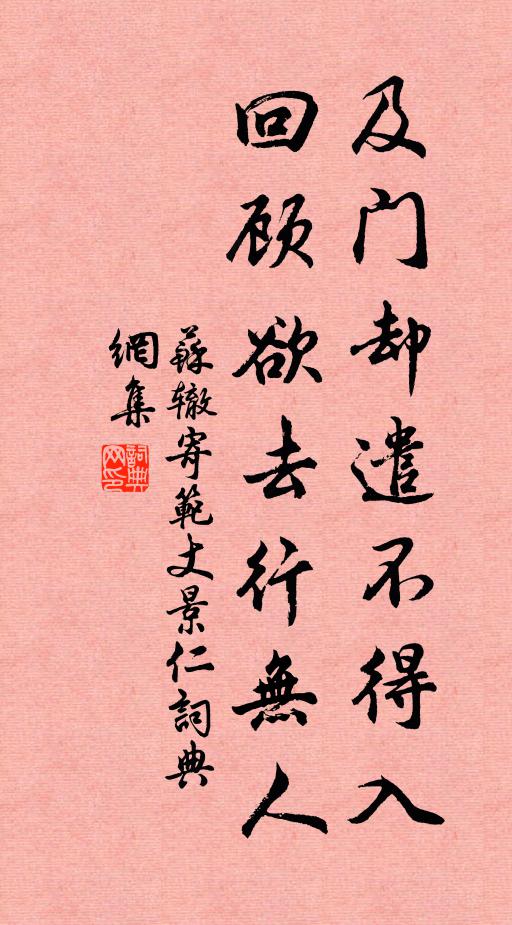 及门却遣不得入
回顾欲去行無人
蘇辙寄範丈景仁詞典
網集
詞典
网印